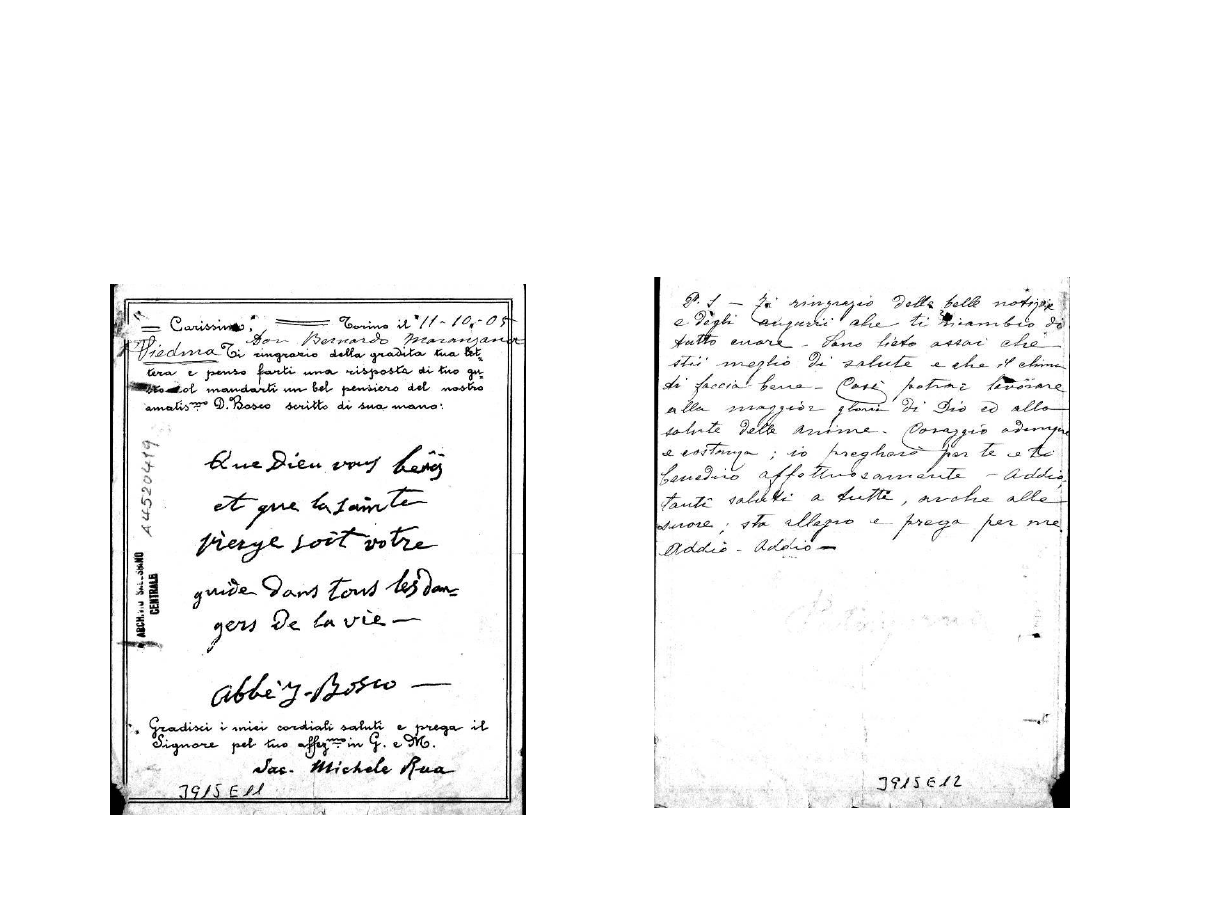 Carissimo, Torino il 11-10-05
Don Bernardo
Viedma Ti ringrazio della gradita tua let-
tera e penso farti una risposta di tuo gu-
sto col mandarti un bel pensiero del nostro
amatis.mo D. Bosco scritto di sua mano:
Que Dieu vous
et que la sainte
vierge soit votre
guide dans tous les dan=
gers de la vie —
abbé J. Bosco —
Gradisci i miei cordiali saluti e prega il
Signore pel tuo affez.mo in G. e M.
Sac. Michele Rua
J915E11
A4520419
ARCHIVIO SALESIANO
CENTRALE
P. S — Ti ringrazio delle belle notizie
e degli augurii che ti ricambio di
tutto cuore - Sono lieto assai che
stii meglio di salute e che il clima
ti faccia bene - Così potrai lavorare
alla maggior gloria di Dio ed alla
salute delle anime. Coraggio adunque
e costanza; io pregherò per te e ti
benedico affettuosamente - Addio,
tanti saluti a tutti, anche alle
suore; sta allegro e prega per me
Addio - Addio —
J915E12